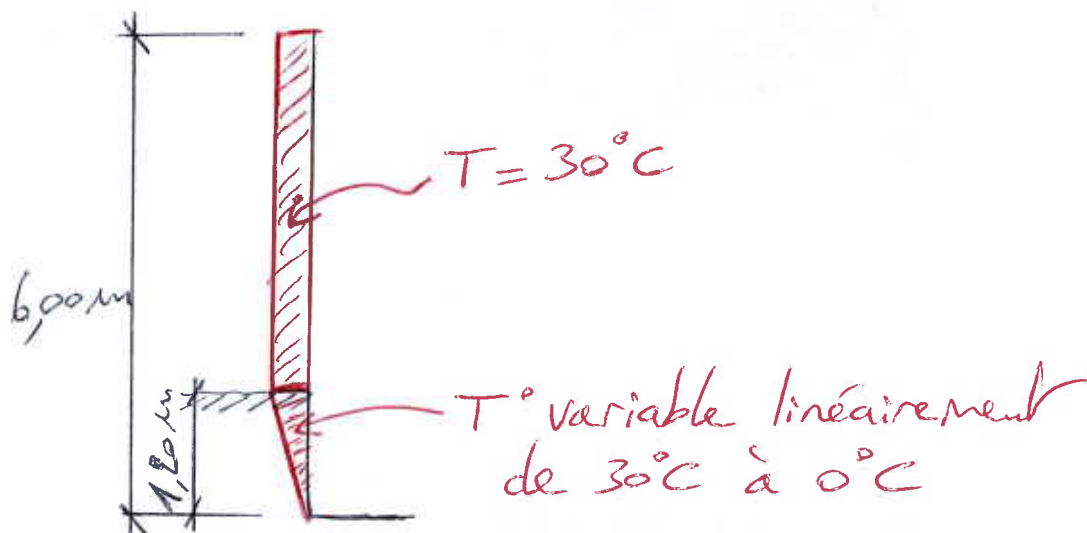 T = 30°C
6,00 m
1,20 m
T° variable linéairement
de 30°C à 0°C